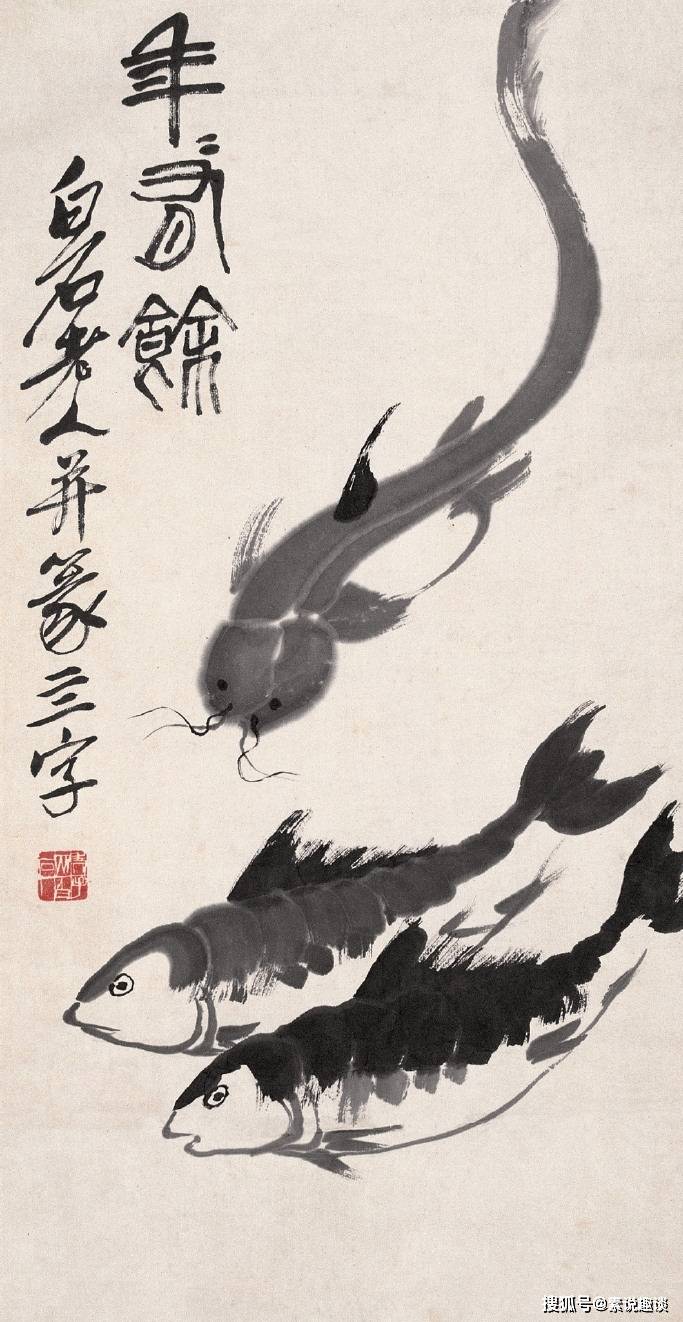 年有餘
白石老人并篆三字
搜狐号@素说趣谈